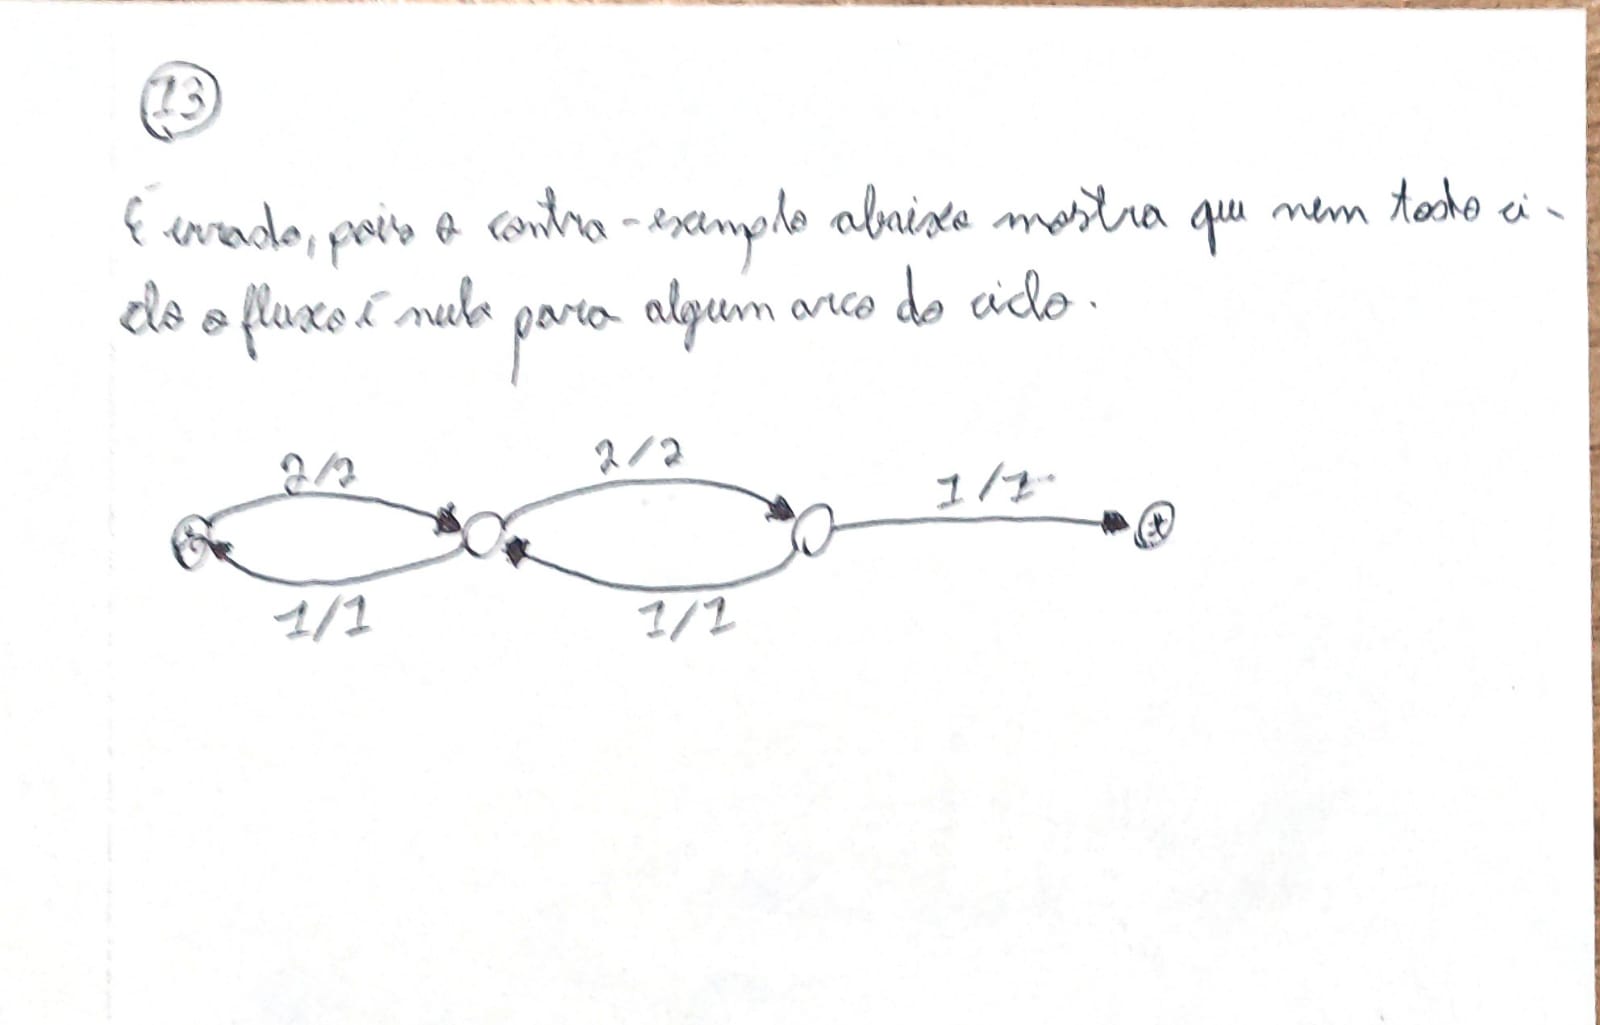 13
É errado, pois o contra-exemplo abaixo mostra que nem todo ci-
clo o fluxo é nulo para algum arco do ciclo.
2/2 2/2 1/1
s t
1/1 1/1